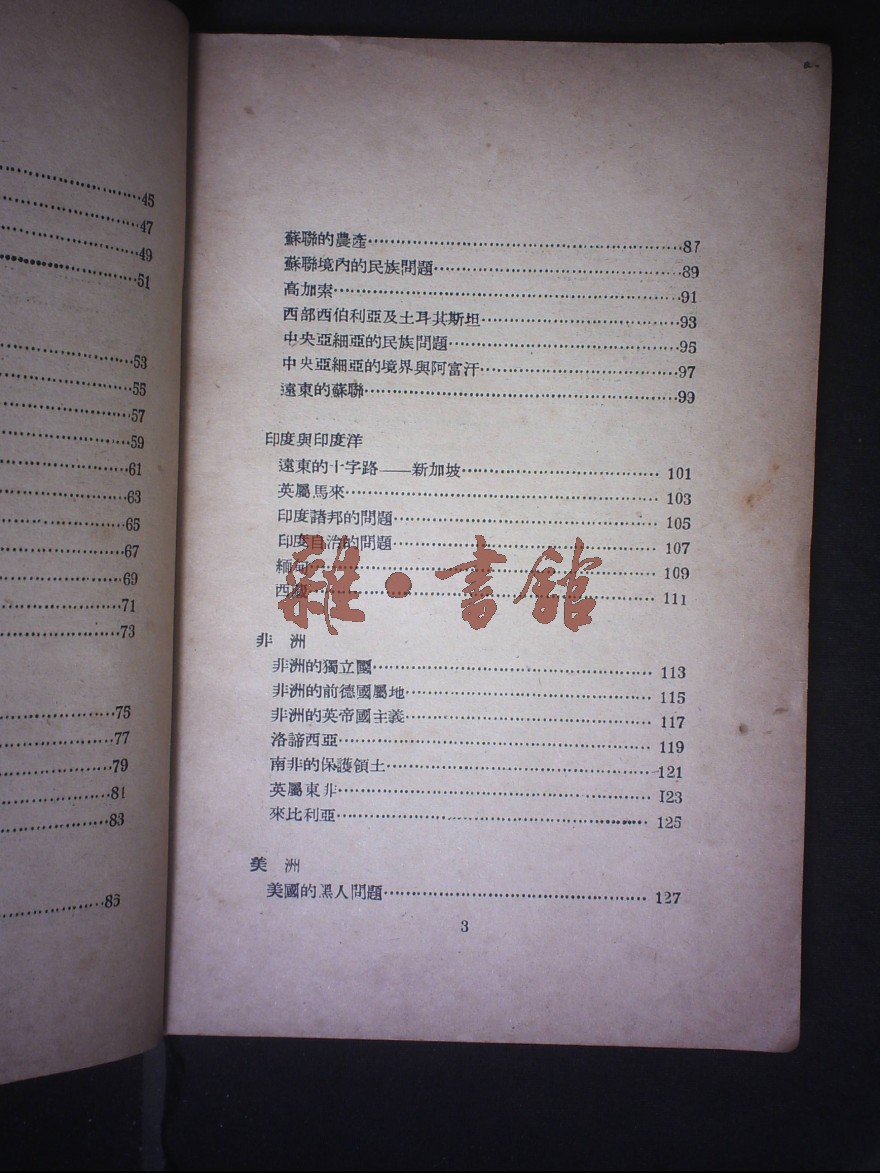 45
47
49
51
53
55
57
59
61
63
65
67
69
71
73
75
77
79
81
83
85
蘇聯的農產……87
蘇聯境內的民族問題……89
高加索……91
西部西伯利亞及土耳其斯坦……93
中央亞細亞的民族問題……95
中央亞細亞的境界與阿富汗……97
遠東的蘇聯……99
印度與印度洋
遠東的十字路——新加坡……101
英屬馬來……103
印度諸邦的問題……105
印度自治的問題……107
緬甸……109
西藏……111
雜·書舘
非洲
非洲的獨立國……113
非洲的前德國屬地……115
非洲的英帝國主義……117
洛諦西亞……119
南非的保護領土……121
英屬東非……123
來比利亞……125
美洲
美國的黑人問題……127
3